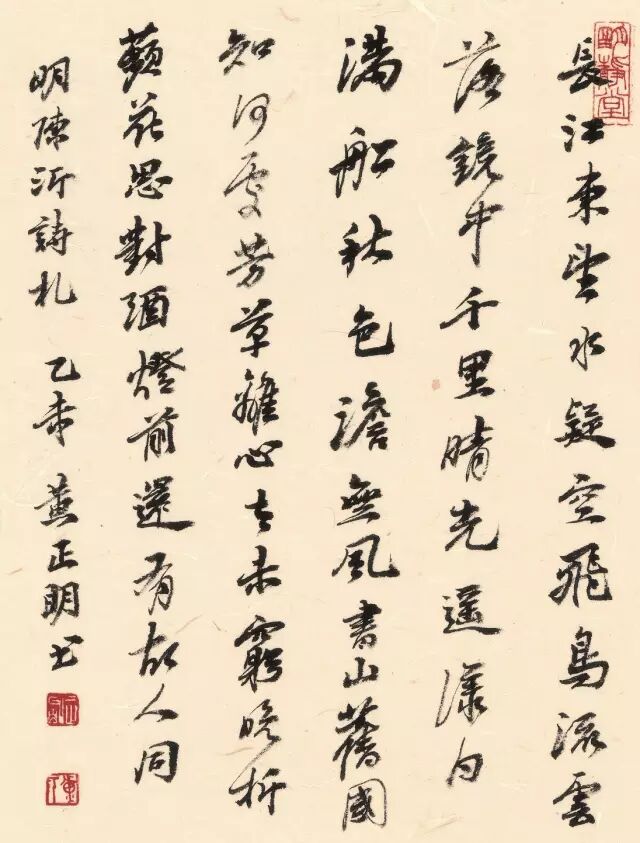 長江東望水疑空飛鳥流雲
落鏡中千里晴光遥漾日
滿船秋色澹無風青山舊國
知何處芳草離心去未窮晚折
蘋花思對酒燈前還有故人同
明陳沂詩札 乙未 黄正明书